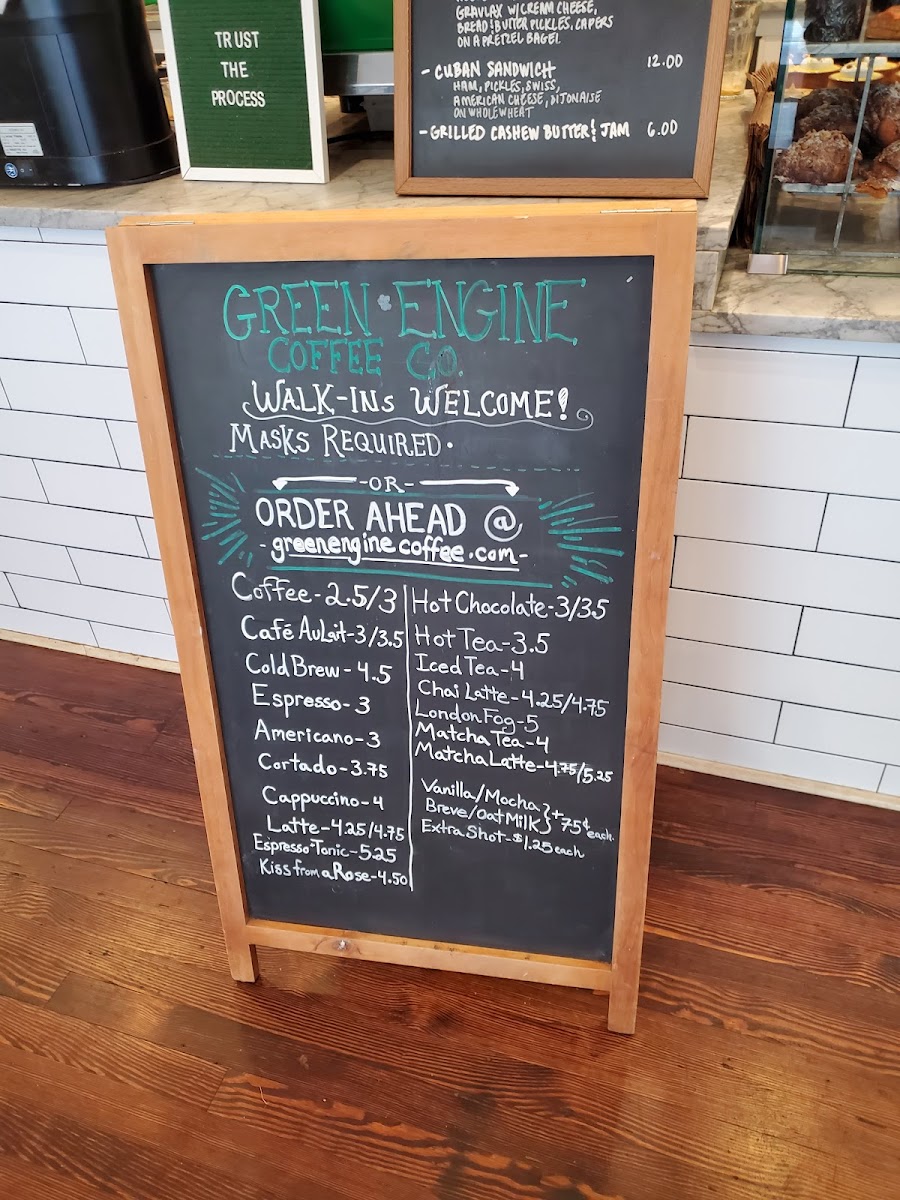 TRUST
THE
PROCESS
GRAVLAX W/CREAM CHEESE,
BREAD & BUTTER PICKLES, CAPERS
ON A PRETZEL BAGEL
- CUBAN SANDWICH 12.00
HAM, PICKLES, SWISS,
AMERICAN CHEESE, DIJONAISE
ON WHOLE WHEAT
- GRILLED CASHEW BUTTER & JAM 6.00
GREEN ENGINE
COFFEE CO.
WALK-INS WELCOME!
MASKS REQUIRED.
-OR-
ORDER AHEAD @
- greenenginecoffee.com -
Coffee - 2.5/3
Café Au Lait - 3/3.5
Cold Brew - 4.5
Espresso - 3
Americano - 3
Cortado - 3.75
Cappuccino - 4
Latte - 4.25/4.75
Espresso Tonic - 5.25
Kiss from a Rose - 4.50
Hot Chocolate - 3/3.5
Hot Tea - 3.5
Iced Tea - 4
Chai Latte - 4.25/4.75
London Fog - 5
Matcha Tea - 4
Matcha Latte - 4.75/5.25
Vanilla/Mocha
Breve/Oat Milk } +75¢ each.
Extra Shot - $1.25 each